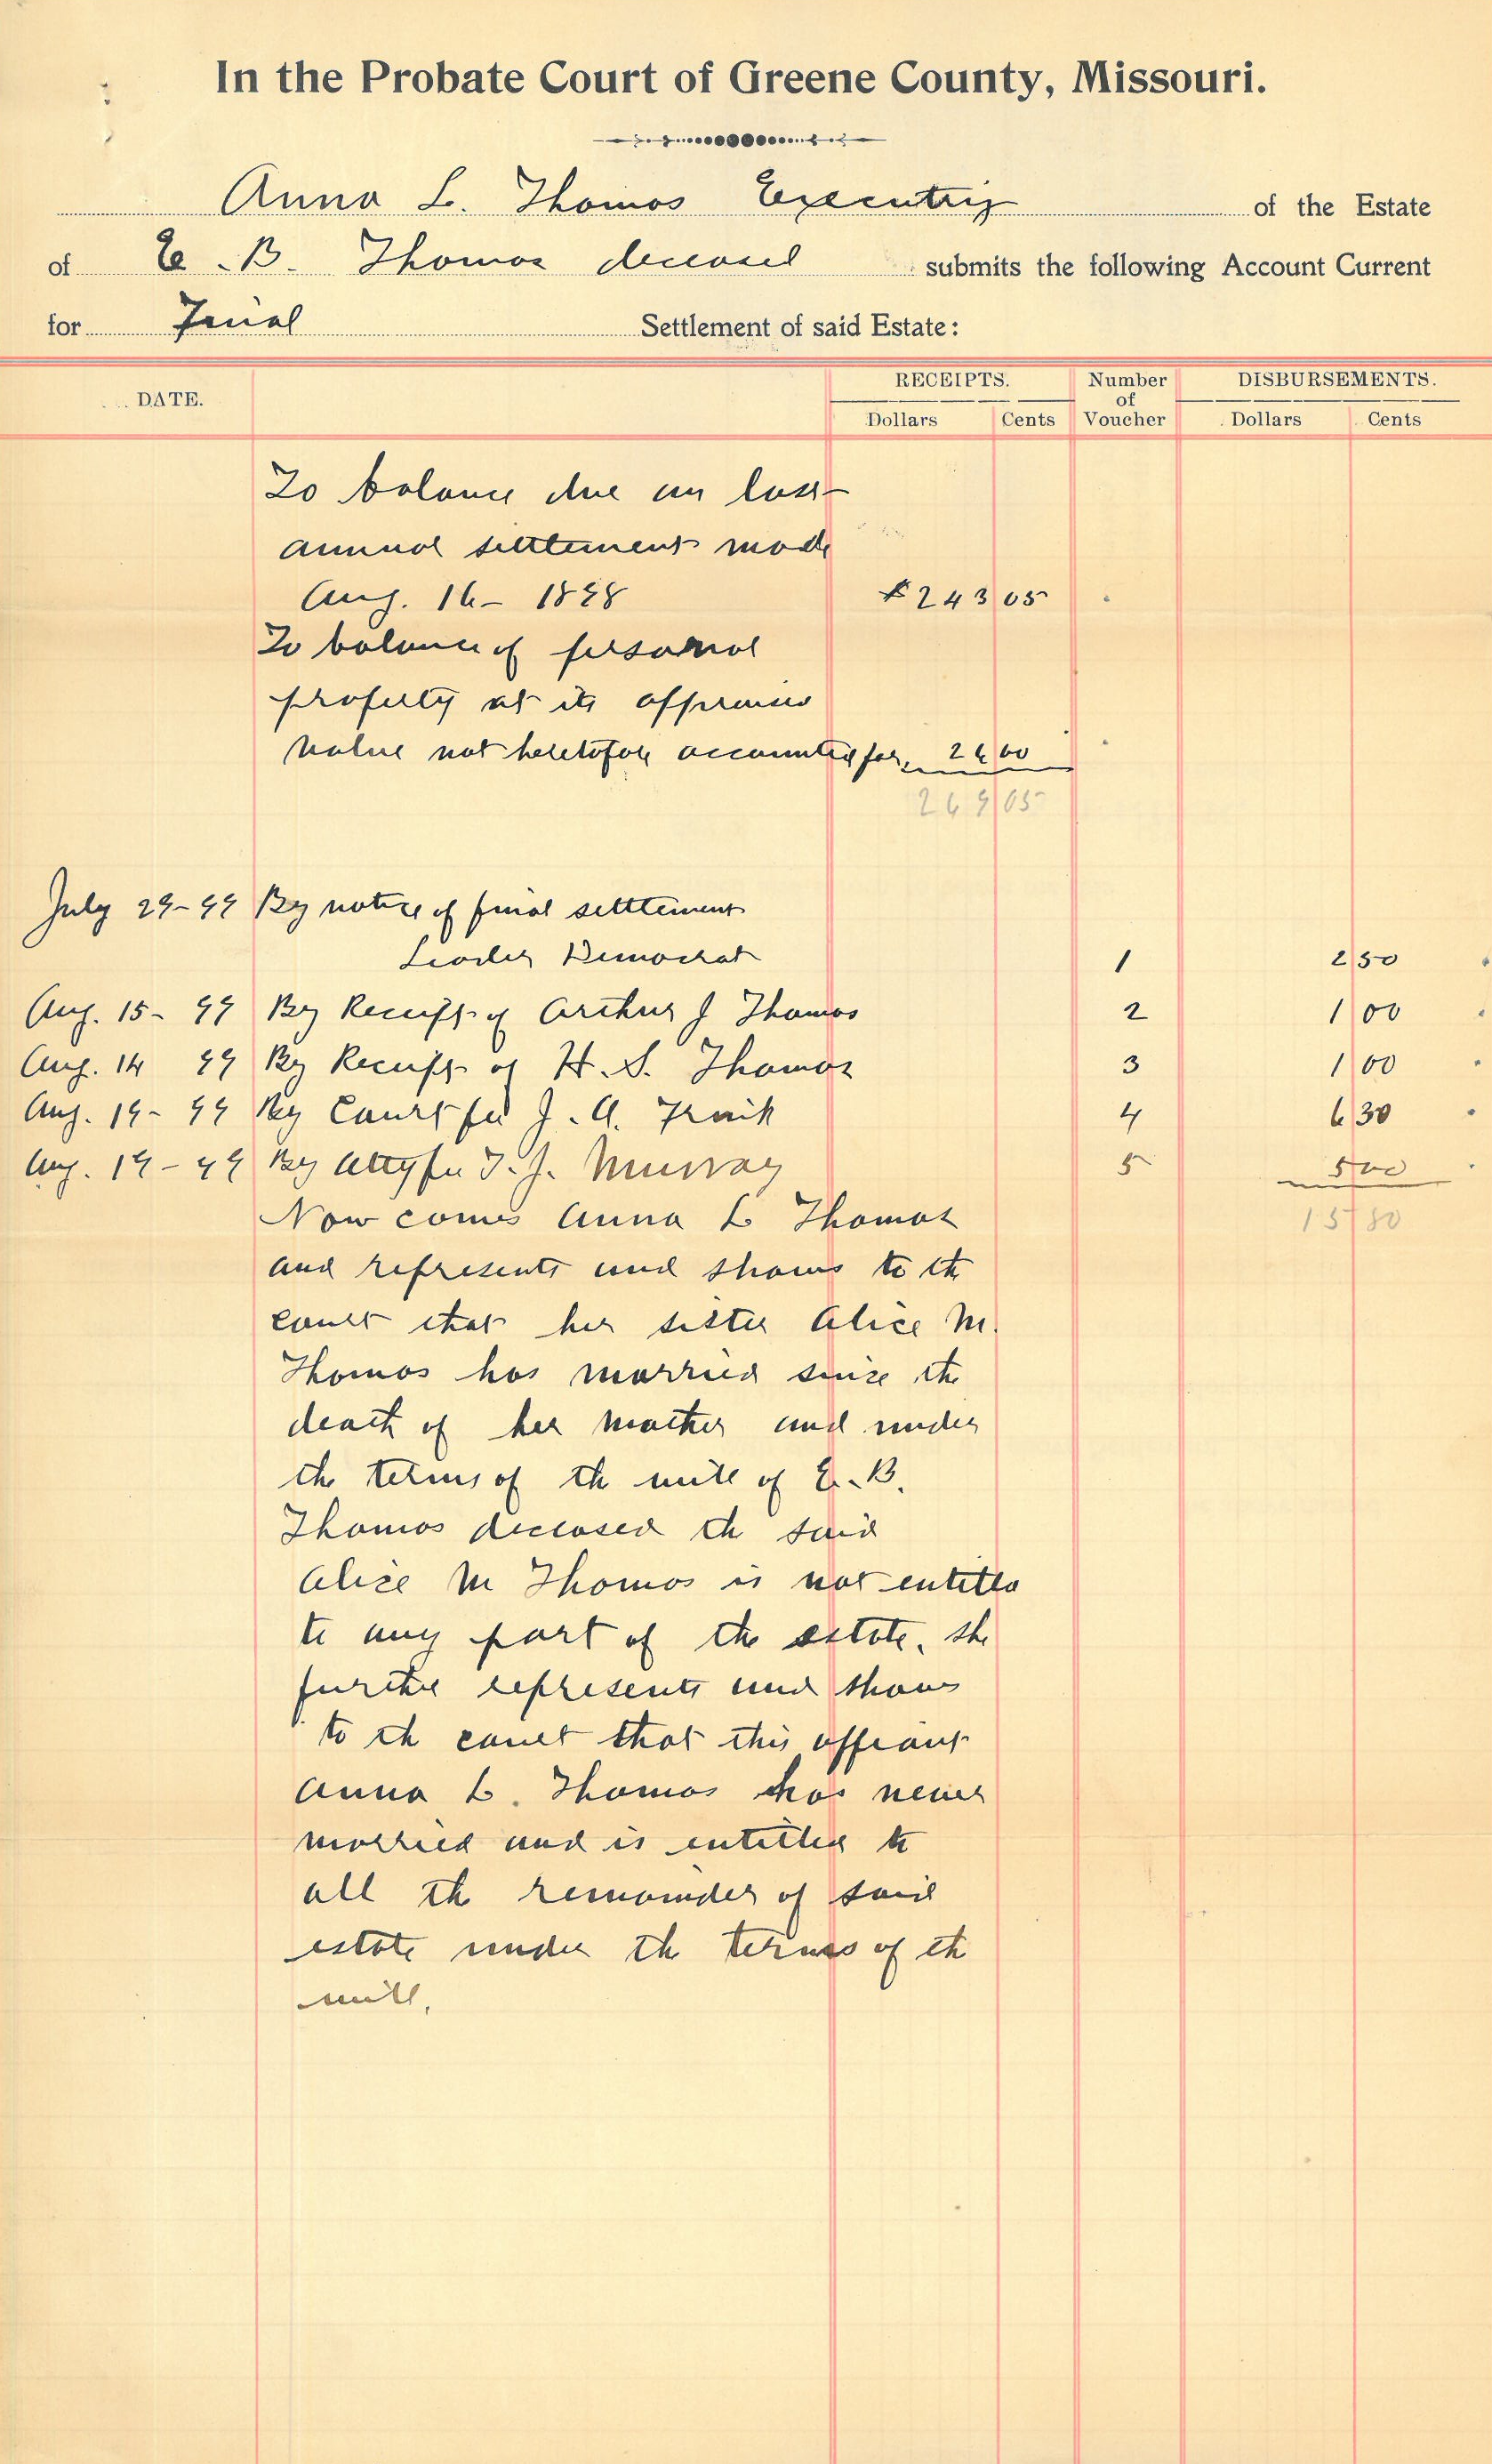 In the Probate Court of Greene County, Missouri.
Anna L. Thomas Executrix of the Estate
of E. B. Thomas deceased submits the following Account Current
for Final Settlement of said Estate:
DATE. RECEIPTS. Number of Voucher DISBURSEMENTS.
Dollars Cents Dollars Cents
To balance due on last
annual settlement made
Aug. 16 - 1898 $243 05
To balance of personal
property at its appraised
value not heretofore accounted for, 26 00
269 05
July 29-99 By notice of final settlement
Leader Democrat 1 2 50
Aug. 15- 99 By Receipt of Arthur J Thomas 2 1 00
Aug. 14 99 By Receipt of H. S. Thomas 3 1 00
Aug. 19- 99 By Court fee J. A. 4 6 30
Aug. 19-99 By Atty fee T. J. Murray 5 5 00
15 80
Now comes Anna L Thomas
and represents and shows to th
court that her sister Alice M.
Thomas has married since the
death of her mother and under
the terms of th will of E. B.
Thomas deceased th said
Alice M Thomas is not entitled
to any part of the estate. She
further represents and shows
to th court that this affiant
Anna L. Thomas has never
married and is entitled to
all th remainder of said
estate under th terms of th
will.